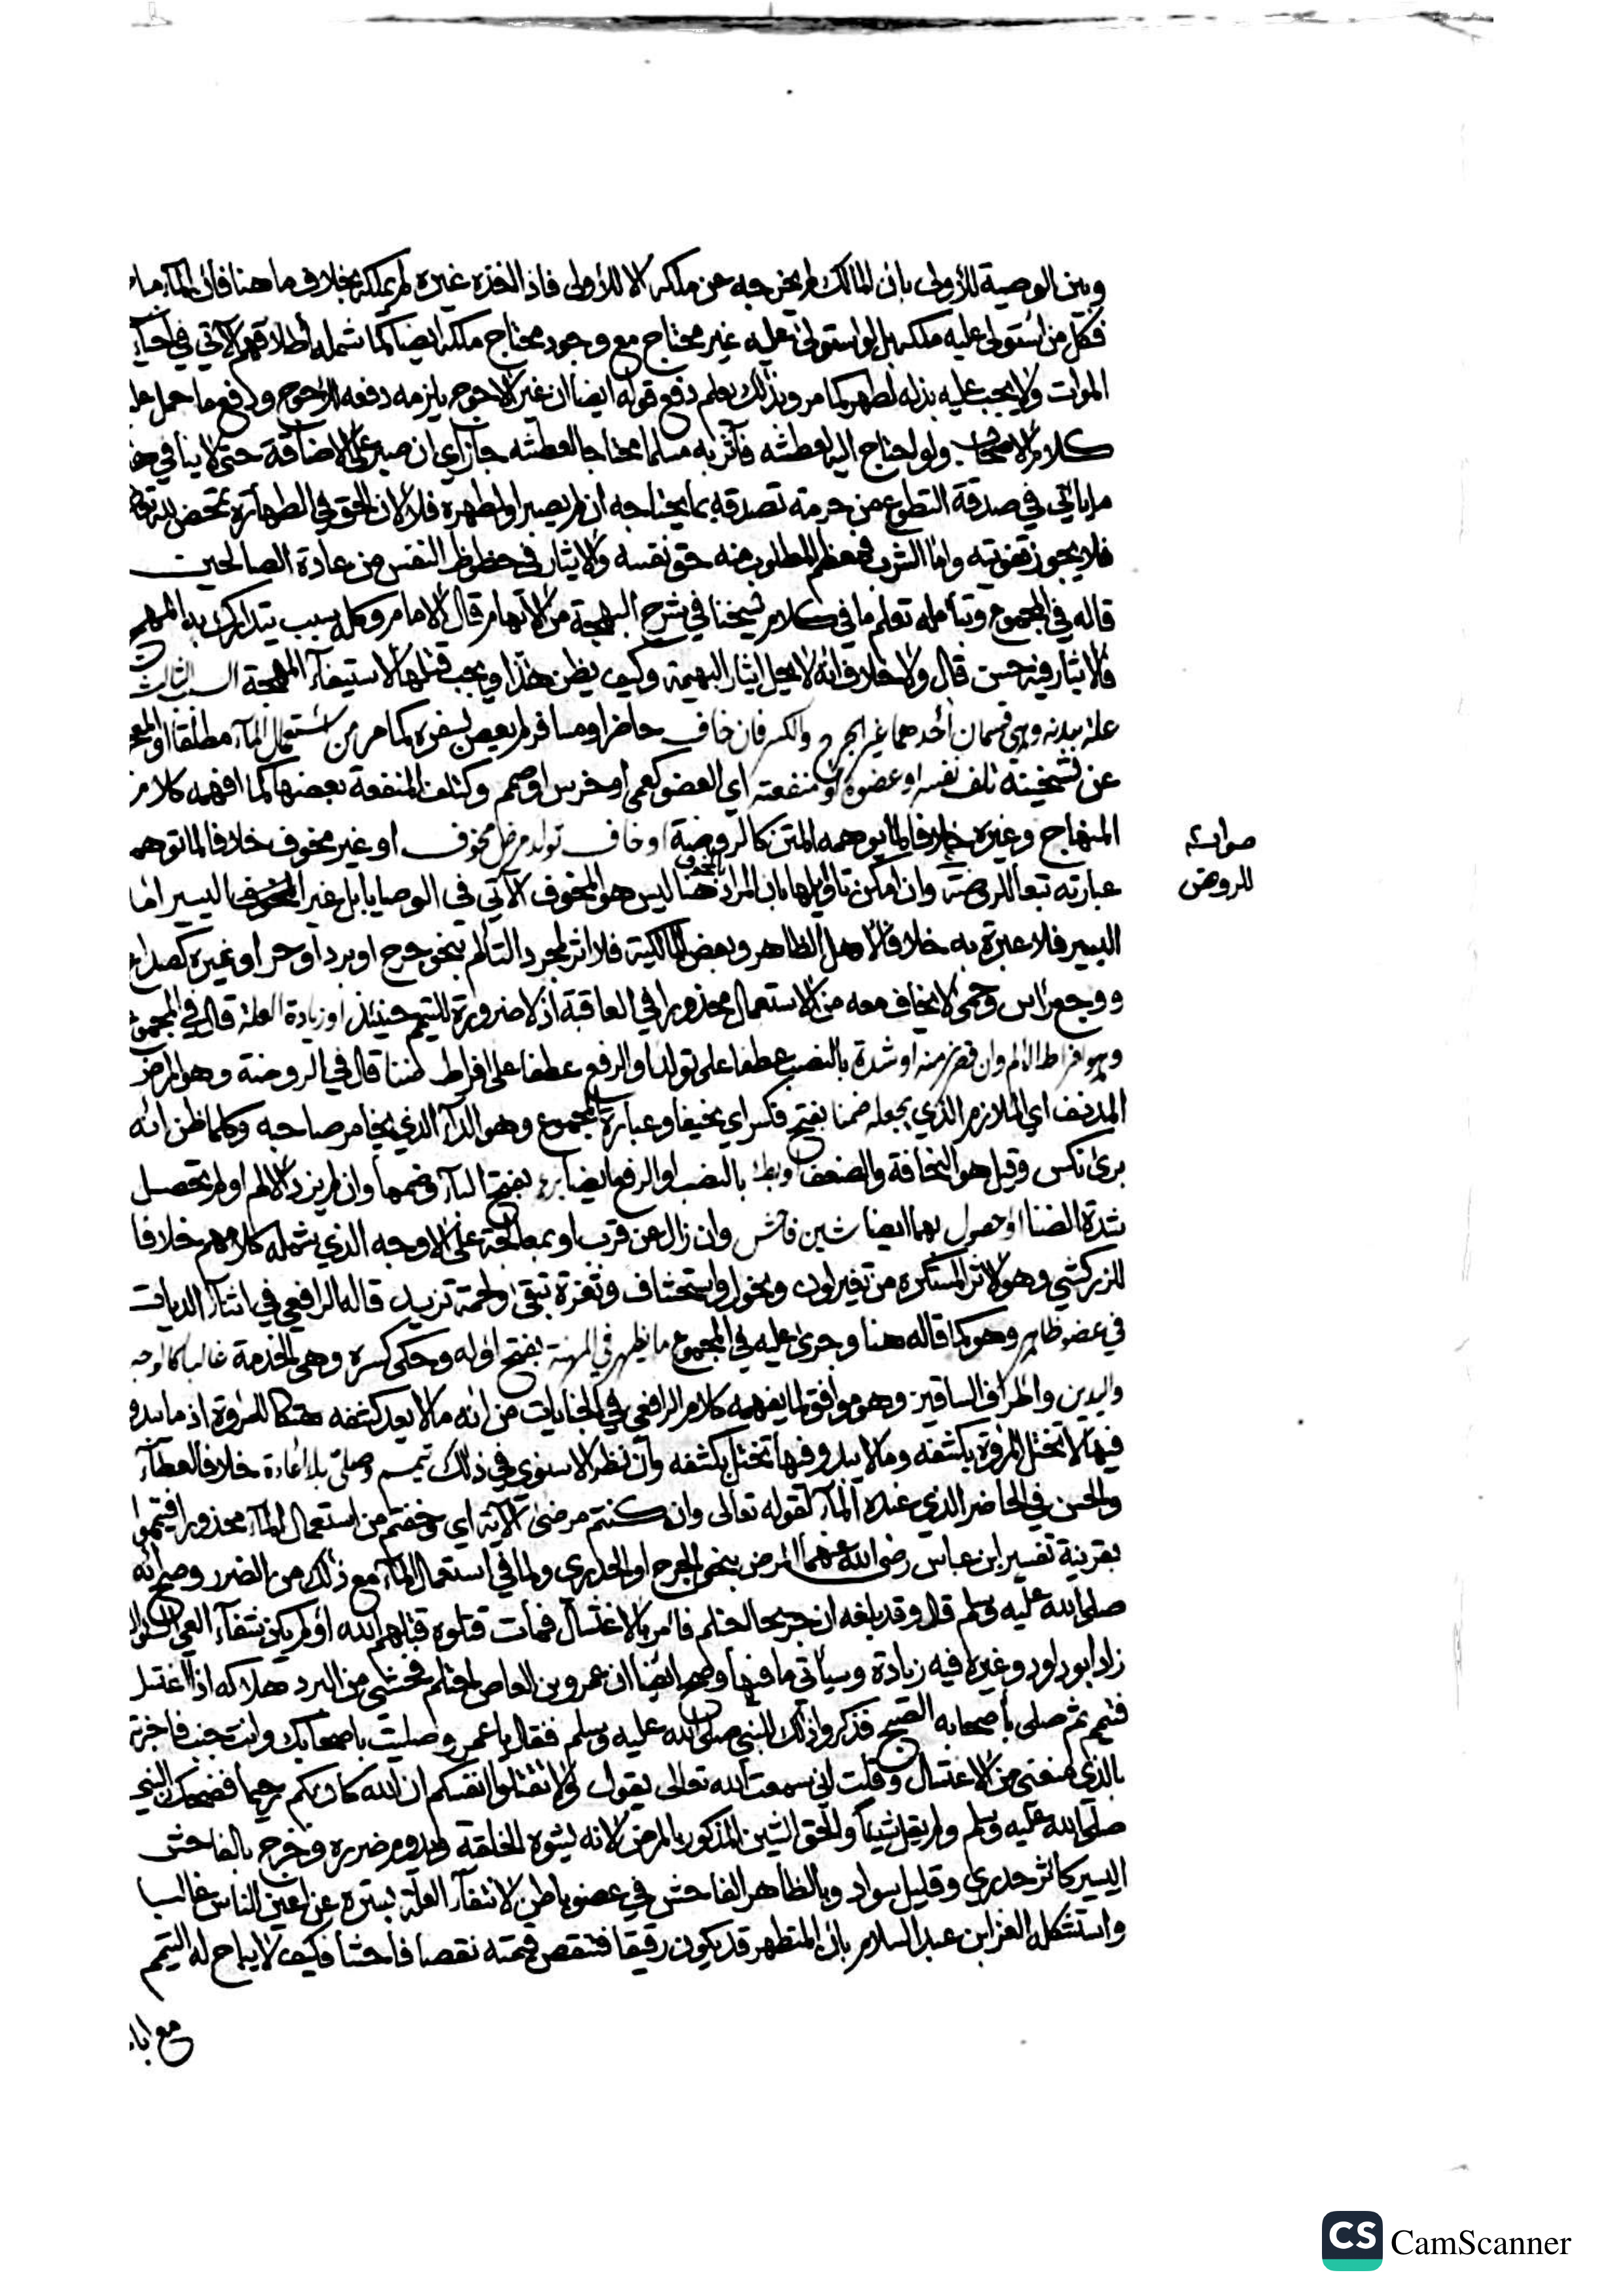 وبين الوصية للأولى بان المالك لم يخرجه عن ملكه الا للأولى فاذا اخذه غيره لم يملكه بخلاف ما هنا فان الماء مباح
فكل من استولى عليه ملكه بل لو استولى عليه غير محتاج مع وجود محتاج ملكه ايضا كما شمله اطلاقهم الآتي في احياء
الموات ولا يجب عليه بذله لطهر كما مر وبذلك يعلم دفع قوله ايضا ان غير الاحوج يلزمه دفعه للاحوج ودفع ما حمل عليه
كلام الاصحاب ولو احتاج اليه لعطشه فآثر به مسلما محتاجا لعطشه جاز اي ان صبر على الاضاقة حتى لا ينافي هذا
ما ياتي في صدقة التطوع من حرمة تصدقه بما يحتاجه ان لم يصبر او لطهره فلا لان الحق في الطهارة تمحض لله تعالى
فلا يجوز تفويته واما الشرب فمعظم المطلوب منه حق نفسه والايثار في حظوظ النفس من عادة الصالحين
قاله في المجموع وبتأمله تعلم ما في كلام شيخنا في شرح البهجة من الابهام قال الامام وكل سبب يتدارك به المهج
فالايثار فيه حسن قال ولا خلاف انه لا يحل ايثار البهيمة وكيف يظن هذا ويجب قتلها لاستبقاء المهجة السبب الثالث
علة ببدنه وهي قسمان أحدهما غير الجرح والكسر فان خاف حاضر او مسافر لم يعص بسفره كما مر من استعمال الماء مطلقا او المعجوز
عن تسخينه تلف نفسه او عضوه او منفعته اي العضو كعمى او خرس او صمم وكتلف المنفعة بعضها كما افهمه كلام
المنهاج وغيره خلافا لما يوهمه المتن كالروضة او خاف تولد مرض مخوف او غير مخوف خلافا لما توهمه
عبارته تبعا للروضة وان امكن تاويلها بان المراد بالمخوف هنا ليس هو المخوف الآتي في الوصايا بل غير اليسير اما
اليسير فلا عبرة به خلافا لاهل الظاهر وبعض المالكية فلا اثر لمجرد التألم بنحو جرح او برد او حر او غيره كصداع
ووجع راس وحمى لا يخاف معه من الاستعمال محذورا في العاقبة اذ لا ضرورة للتيمم حينئذ او زيادة العلة قال في المجموع
وهو افراط الالم وان قصر زمنه او شدة بالنصب عطفا على تولد او الرفع عطفا على افراط ضنا قال في الروضة وهو المرض
المدنف اي الملازم الذي يجعله ضمنا بفتح فكسر اي نحيفا وعبارة المجموع وهو الداء الذي يخامر صاحبه وكلما ظن انه
برئ نكس وقيل هو النحافة والضعف او بطء بالنصب او الرفع ايضا برء بفتح الباء وضمها وان لم يزد الالم او لم تحصل
شدة الضنا او حصول بهما ايضا شين فاحش وان زال عن قرب او بمعالجة على الاوجه الذي شمله كلامهم خلافا
للزركشي وهو الاثر المستكره من تغير لون ونحول واستحشاف وثغرة تبقى ولحمة تزيد قاله الرافعي في اثناء الديات
في عضو ظاهر وهو كما قاله هنا وجرى عليه في المجموع ما يظهر في المهنة بفتح اوله وحكى كسره وهي الخدمة غالبا كالوجه
واليدين واطراف الساقين وهو موافق لما يفهمه كلام الرافعي في الجنايات من انه ما لا يعد كشفه هتكا للمروة اذ ما يبدو
فيها لا تختل المروة بكشفه وما لا يبدو فيها تختل بكشفه وان نظر الاسنوي في ذلك تيمم وصلى بلا اعادة خلافا لعطاء
والحسن في الحاضر الذي عنده الماء لقوله تعالى وان كنتم مرضى الآية اي وخفتم من استعمال الماء محذورا فتيمموا
بقرينة تفسير ابن عباس رضي الله عنهما المرض بنحو الجرح او الجدري ولما في استعمال الماء مع ذلك من الضرر وصح انه
صلى الله عليه وسلم قال وقد بلغه ان جريحا احتلم فامر بالاغتسال فمات قتلوه قتلهم الله اولم يكن شفاء العي السؤال
زاد ابو داود وغيره فيه زيادة وسيأتي ما فيها وصح ايضا ان عمرو بن العاص احتلم فخشي من البرد هلاكه اذا اغتسل
فتيمم ثم صلى باصحابه الصبح فذكروا ذلك للنبي صلى الله عليه وسلم فقال يا عمرو صليت باصحابك وانت جنب فاخبرته
بالذي منعني من الاغتسال وقلت اني سمعت الله تعالى يقول ولا تقتلوا انفسكم ان الله كان بكم رحيما فضحك النبي
صلى الله عليه وسلم ولم يقل شيئا والحق الشين المذكور بالمرض لانه يشوه الخلقة ويدوم ضرره وخرج بالفاحش
اليسير كاثر جدري وقليل سواد وبالظاهر الفاحش في عضو باطن لانتفاء العلة بستره عن اعين الناس غالبا
واستشكله العز ابن عبد السلام بان المتطهر قد يكون رقيقا فتنقص قيمته نقصا فاحشا فكيف لا يباح له التيمم
مع ابا
صوابه
للروض
CS CamScanner